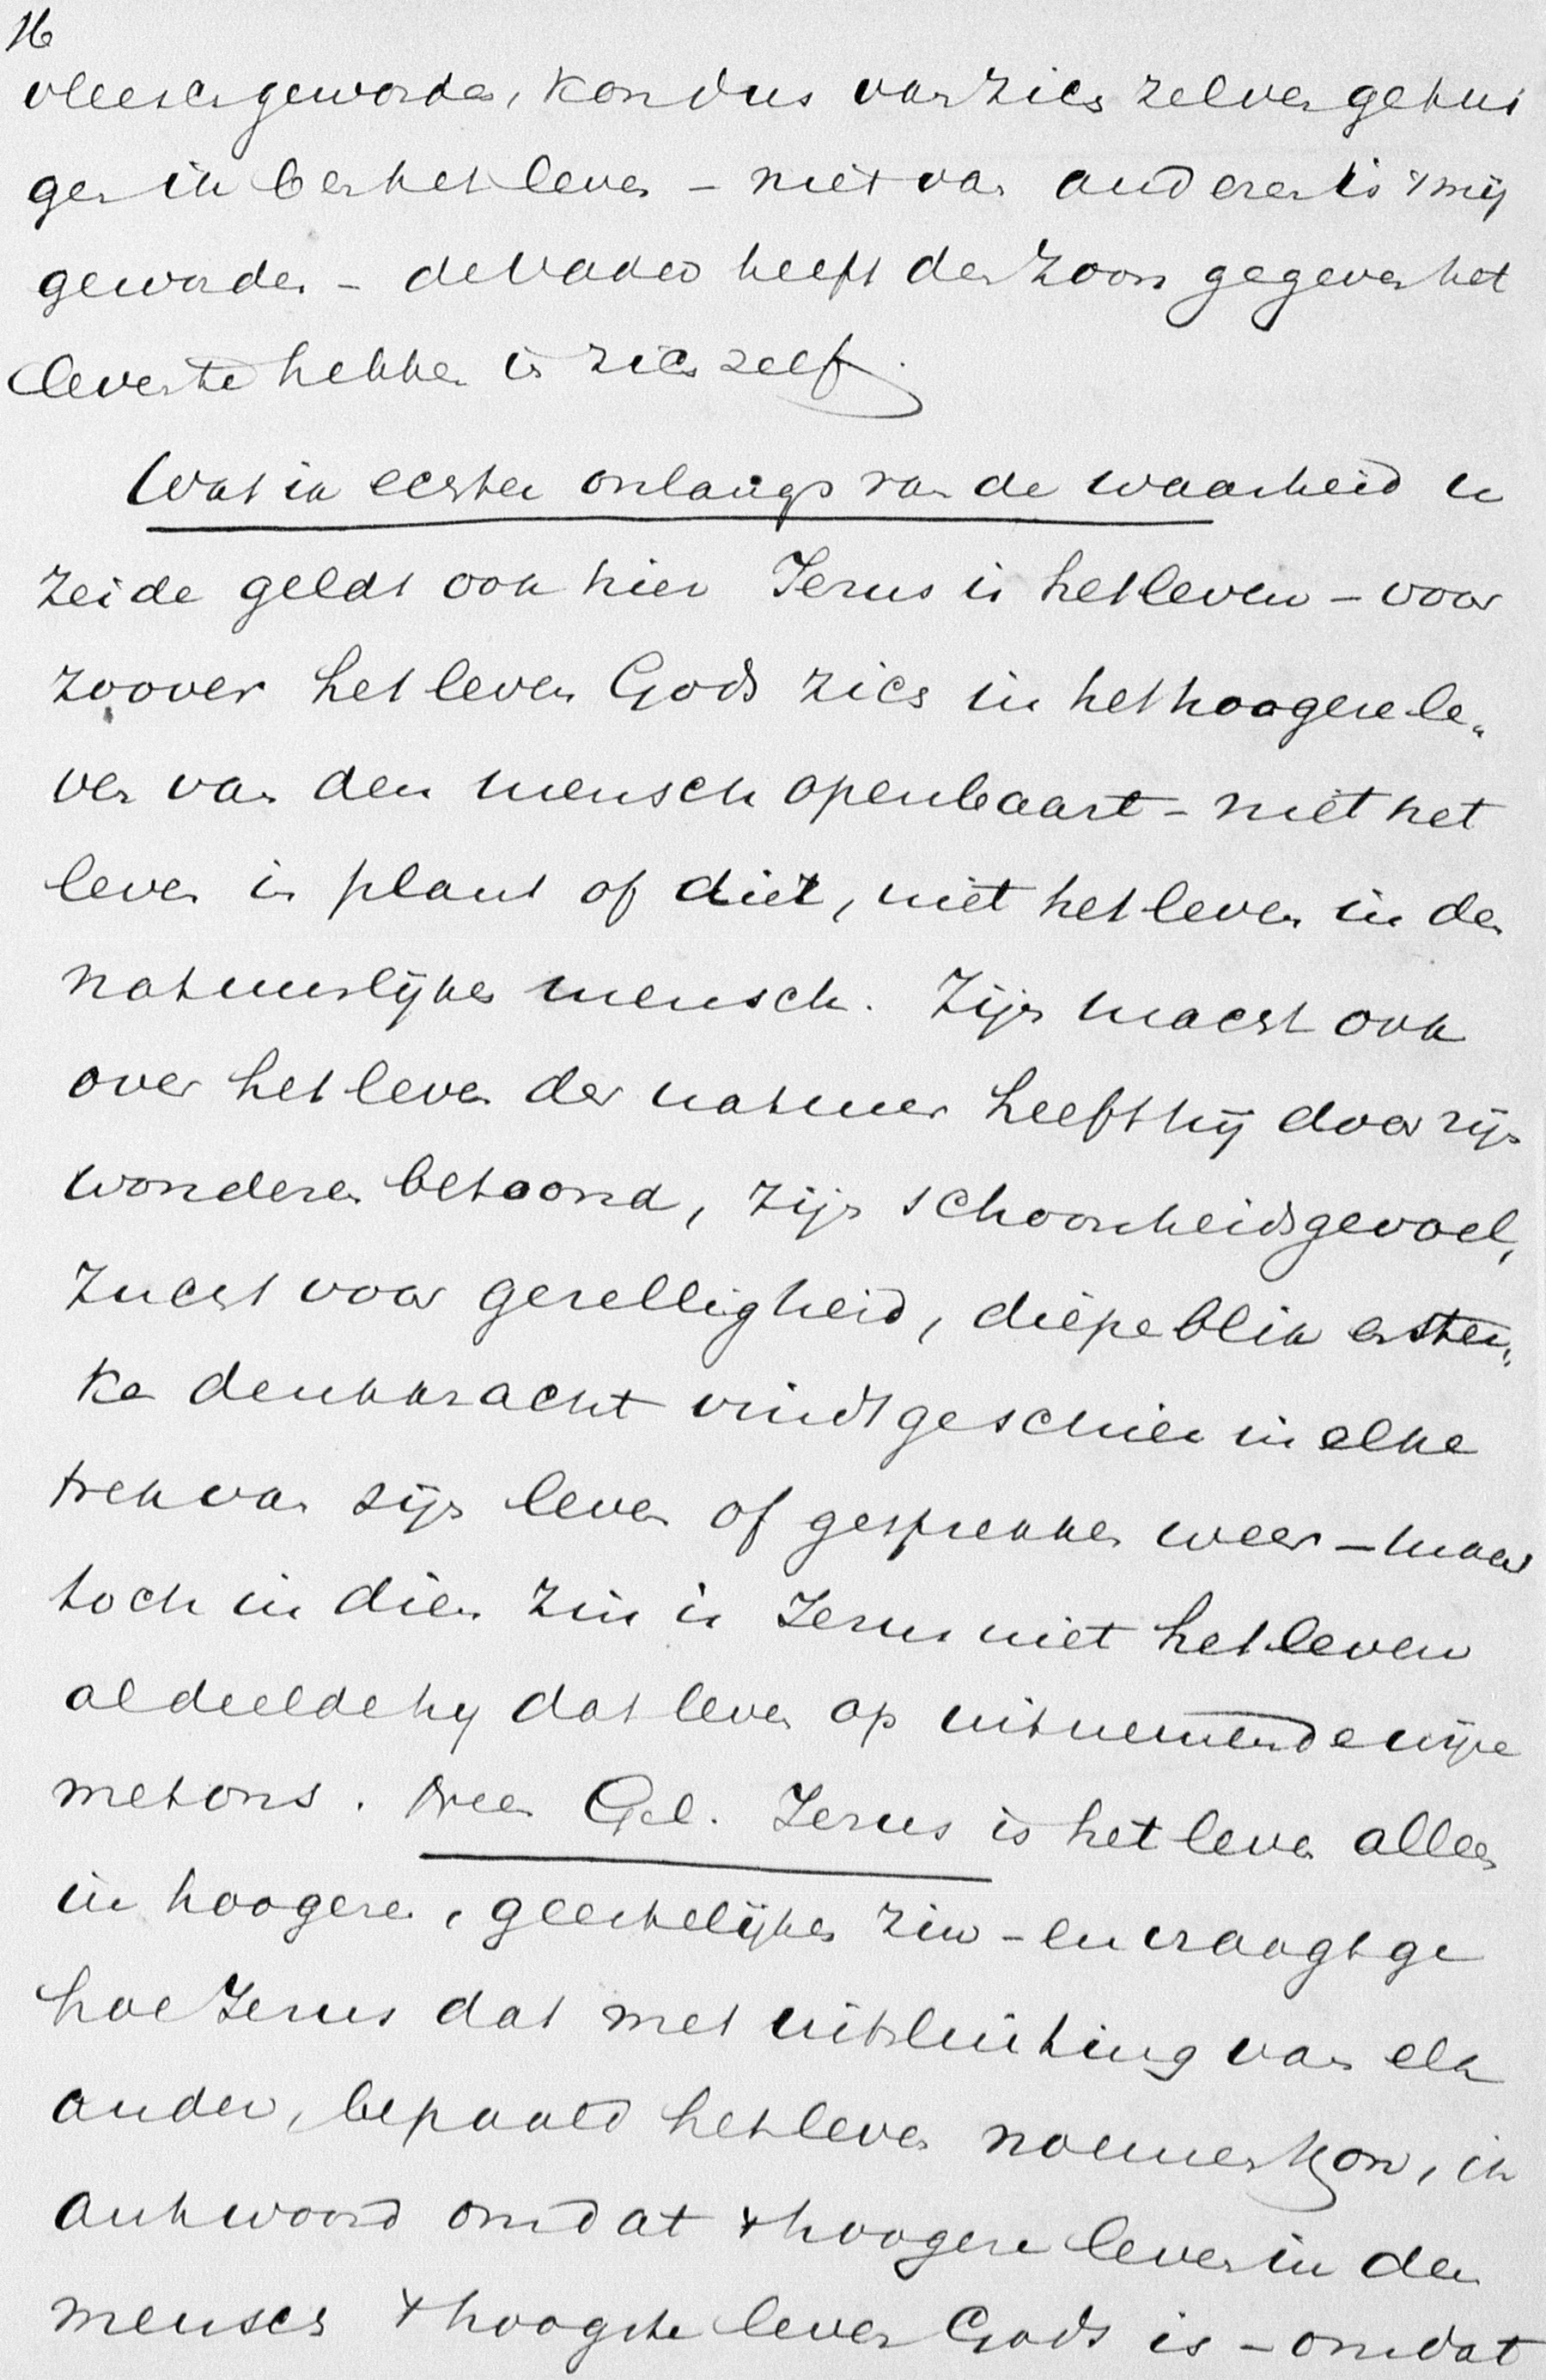 16
vleesch geworden, kon dus van zich zelven getui
gen ik ben het leven – niet van anderen is 't mij
geworden – de Vader heeft den Zoon gegeven het
leven te hebben in zich zelf.
Wat ik echter onlangs van de waarheid u
zeide geldt ook hier Jezus is het leven – voor
zoover het leven Gods zich in het hoogere le„
ven van den mensch openbaart – niet het
leven in plant of dier, niet het leven in den
natuurlijken mensch. Zijn macht ook
over het leven der natuur heeft hij door zijn
wonderen betoond, zijn schoonheidsgevoel,
zucht voor gezelligheid, diepe blik en ster„
ke denkkracht vindt ge schier in elke
trek van zijn leven of gesprekken weer – maar
toch in dien zin is Jezus niet het leven
al deelde hij dat leven op uitnemende wijze
met ons. Neen Gel. Jezus is het leven alleen
in hoogeren, geestelijken zin – en vraagt ge
hoe Jezus dat met uitsluiting van elk
ander, bepaald het leven noemen kon, ik
antwoord omdat 't hoogere leven in den
mensch 't hoogste leven Gods is – omdat